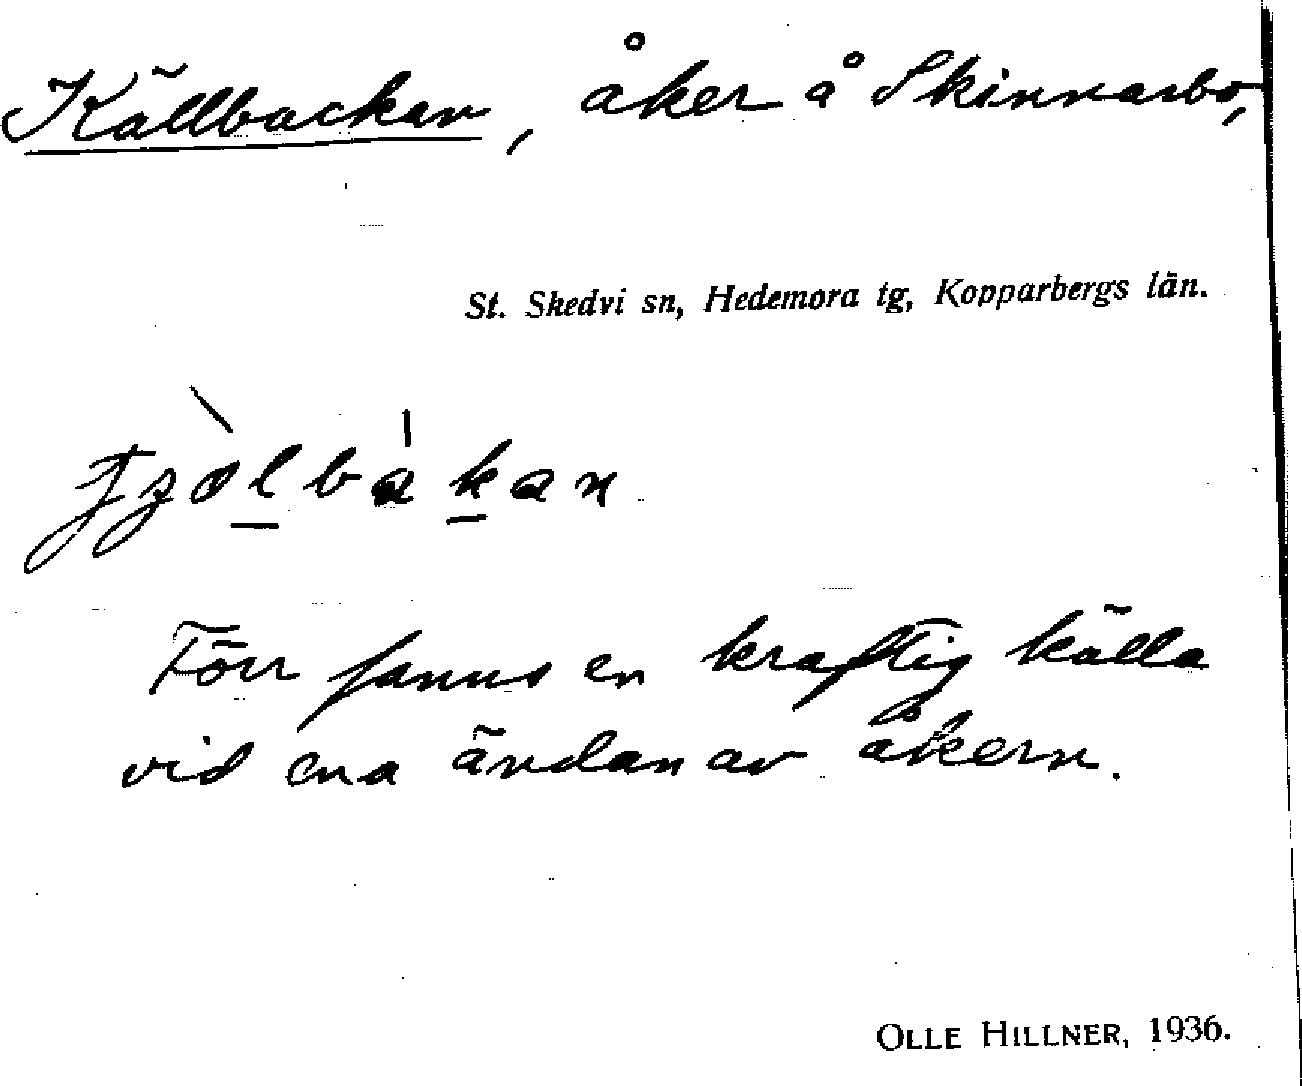 Källbackan, åker å Skinnarbo,
St. Skedvi sn, Hedemora tg, Kopparbergs län.
Förr fanns en kraftig källa
vid ena ändan av åkern.
OLLE HILLNER, 1936.